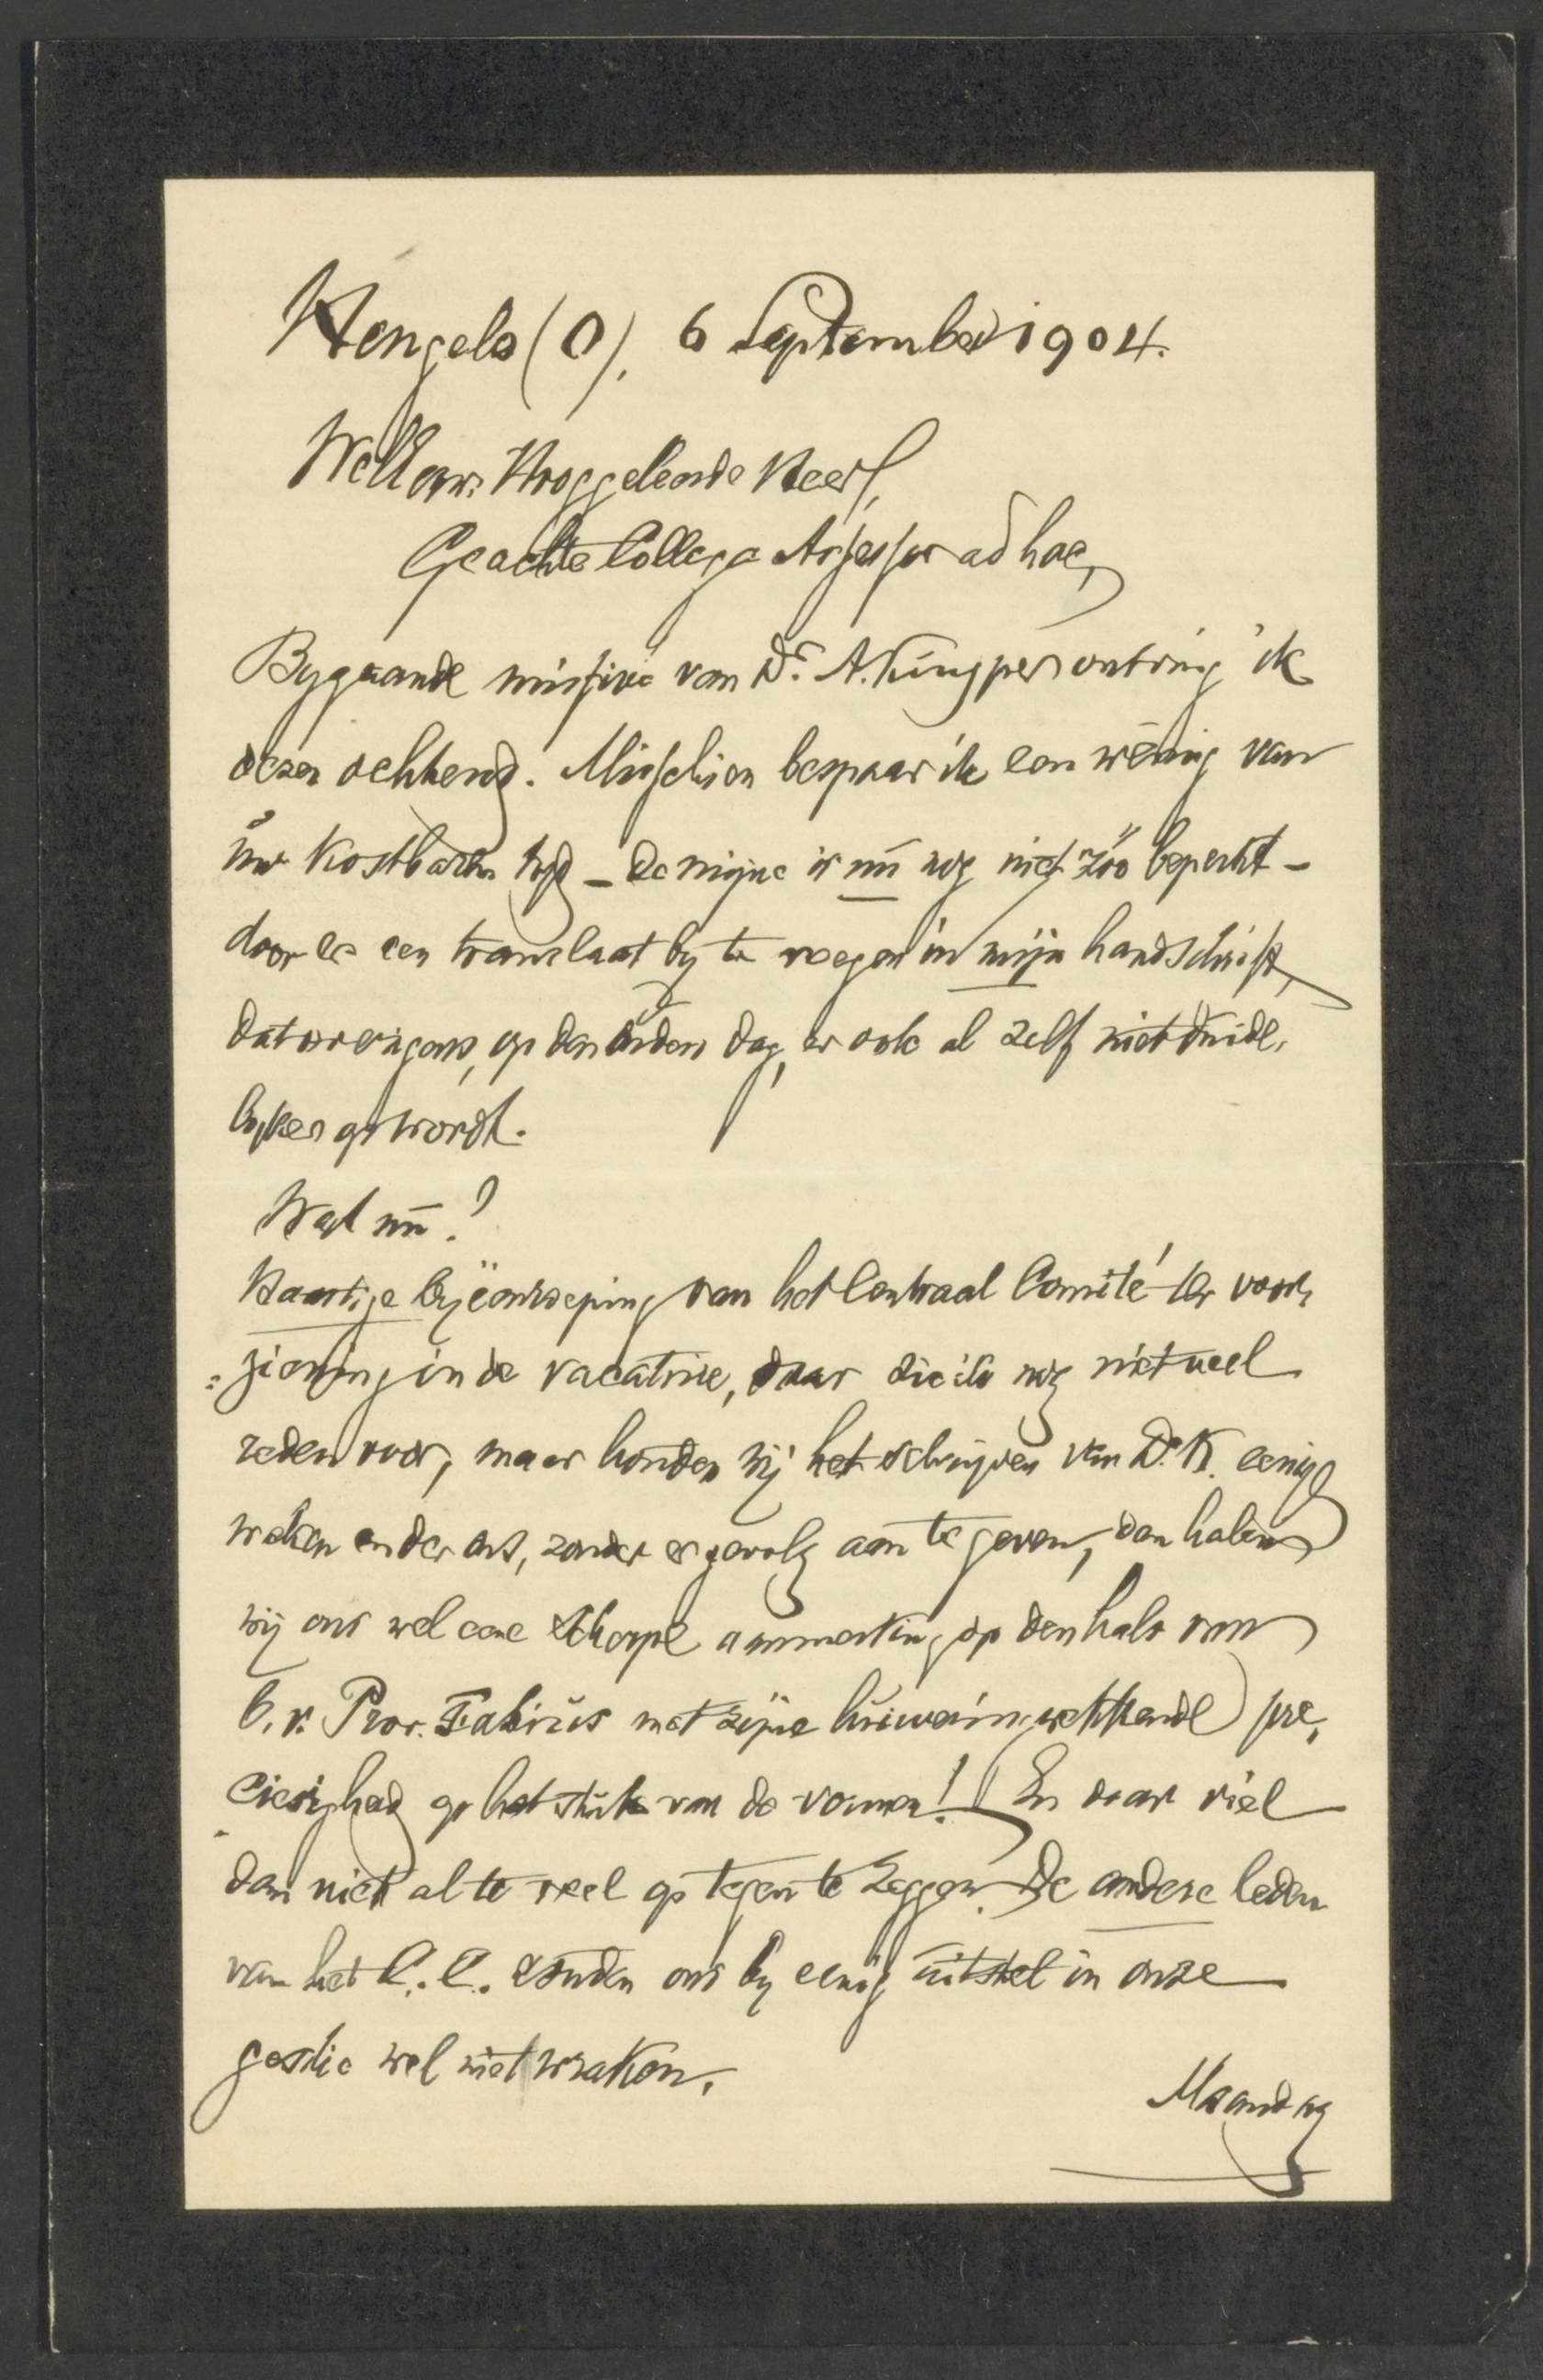 Hengelo (O), 6 September 1904.
WelEerw. Hooggeleerde Heer,
Geachte Collega Assessor ad hoc,
Bygaande missive van Dr. A. Kuyper ontving ik
dezen ochtend. Misschien bespaar ik een weinig van
uw kostbaren tyd – de mijne is nu nog niet zóó beperkt –
door er een translaat by te voegen in mijn handschrift,
dat overigens, op den ouden dag, er ook al zelf niet duide-
lyker op wordt.
Wat nu?
Haastige byëenroeping van het Centraal Comité ter voor-
=ziening in de vacature, daar zie ik nog niet veel
reden voor, maar houden wij het schrijven van Dr. K. eenige
weken onder ons, zonder er gevolg aan te geven, dan halen
wij ons wel eene scherpe aanmerking op den hals van
b.v. Prof. Fabius met zijne huiveringwekkende pre-
ciesigheid op het stuk van de vormen! En daar viel
dan niet al te veel op tegen te zeggen. De andere leden
van het C.C. zouden ons by eenig uitstel in onze
gestie wel niet wraken.
Maandag